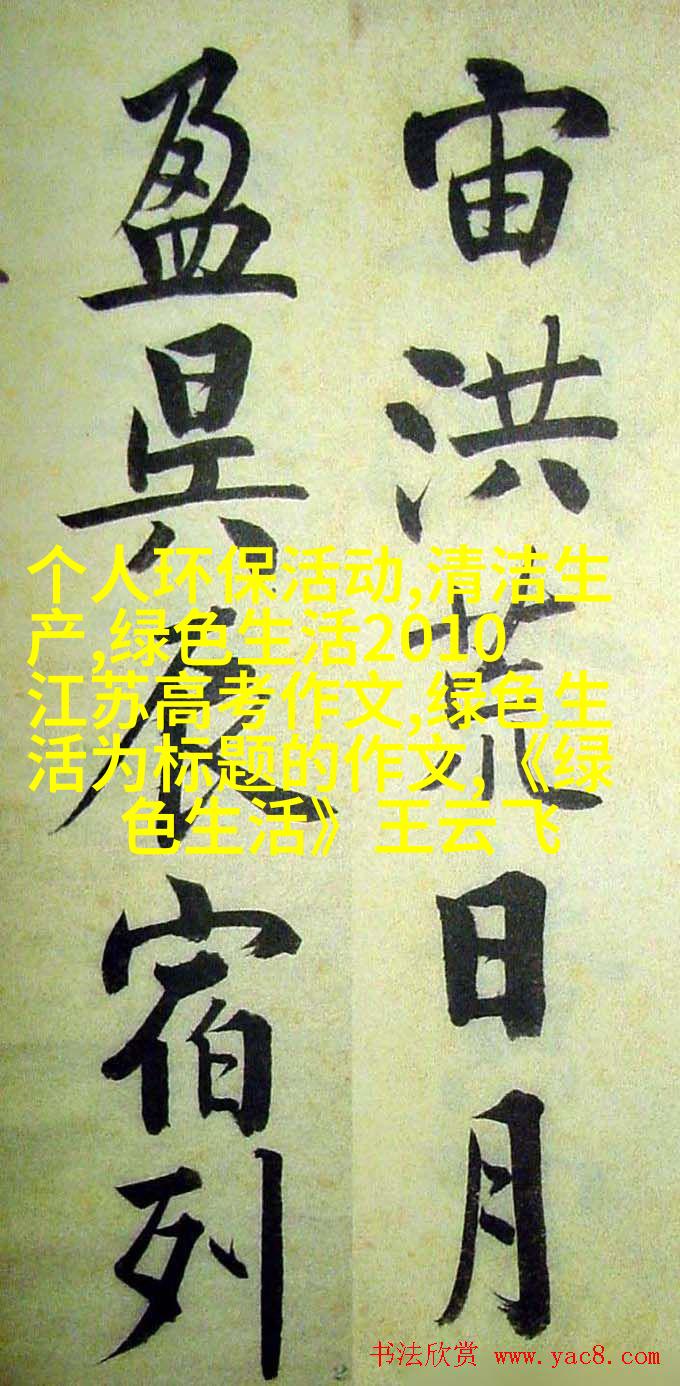 宙洪荒日月
盈昃辰宿列
个人环保活动,清洁生
产,绿色生活2010
江苏高考作文,绿色生
活为标题的作文,《绿
色生活》王云飞
书法欣赏 www.yac8.com